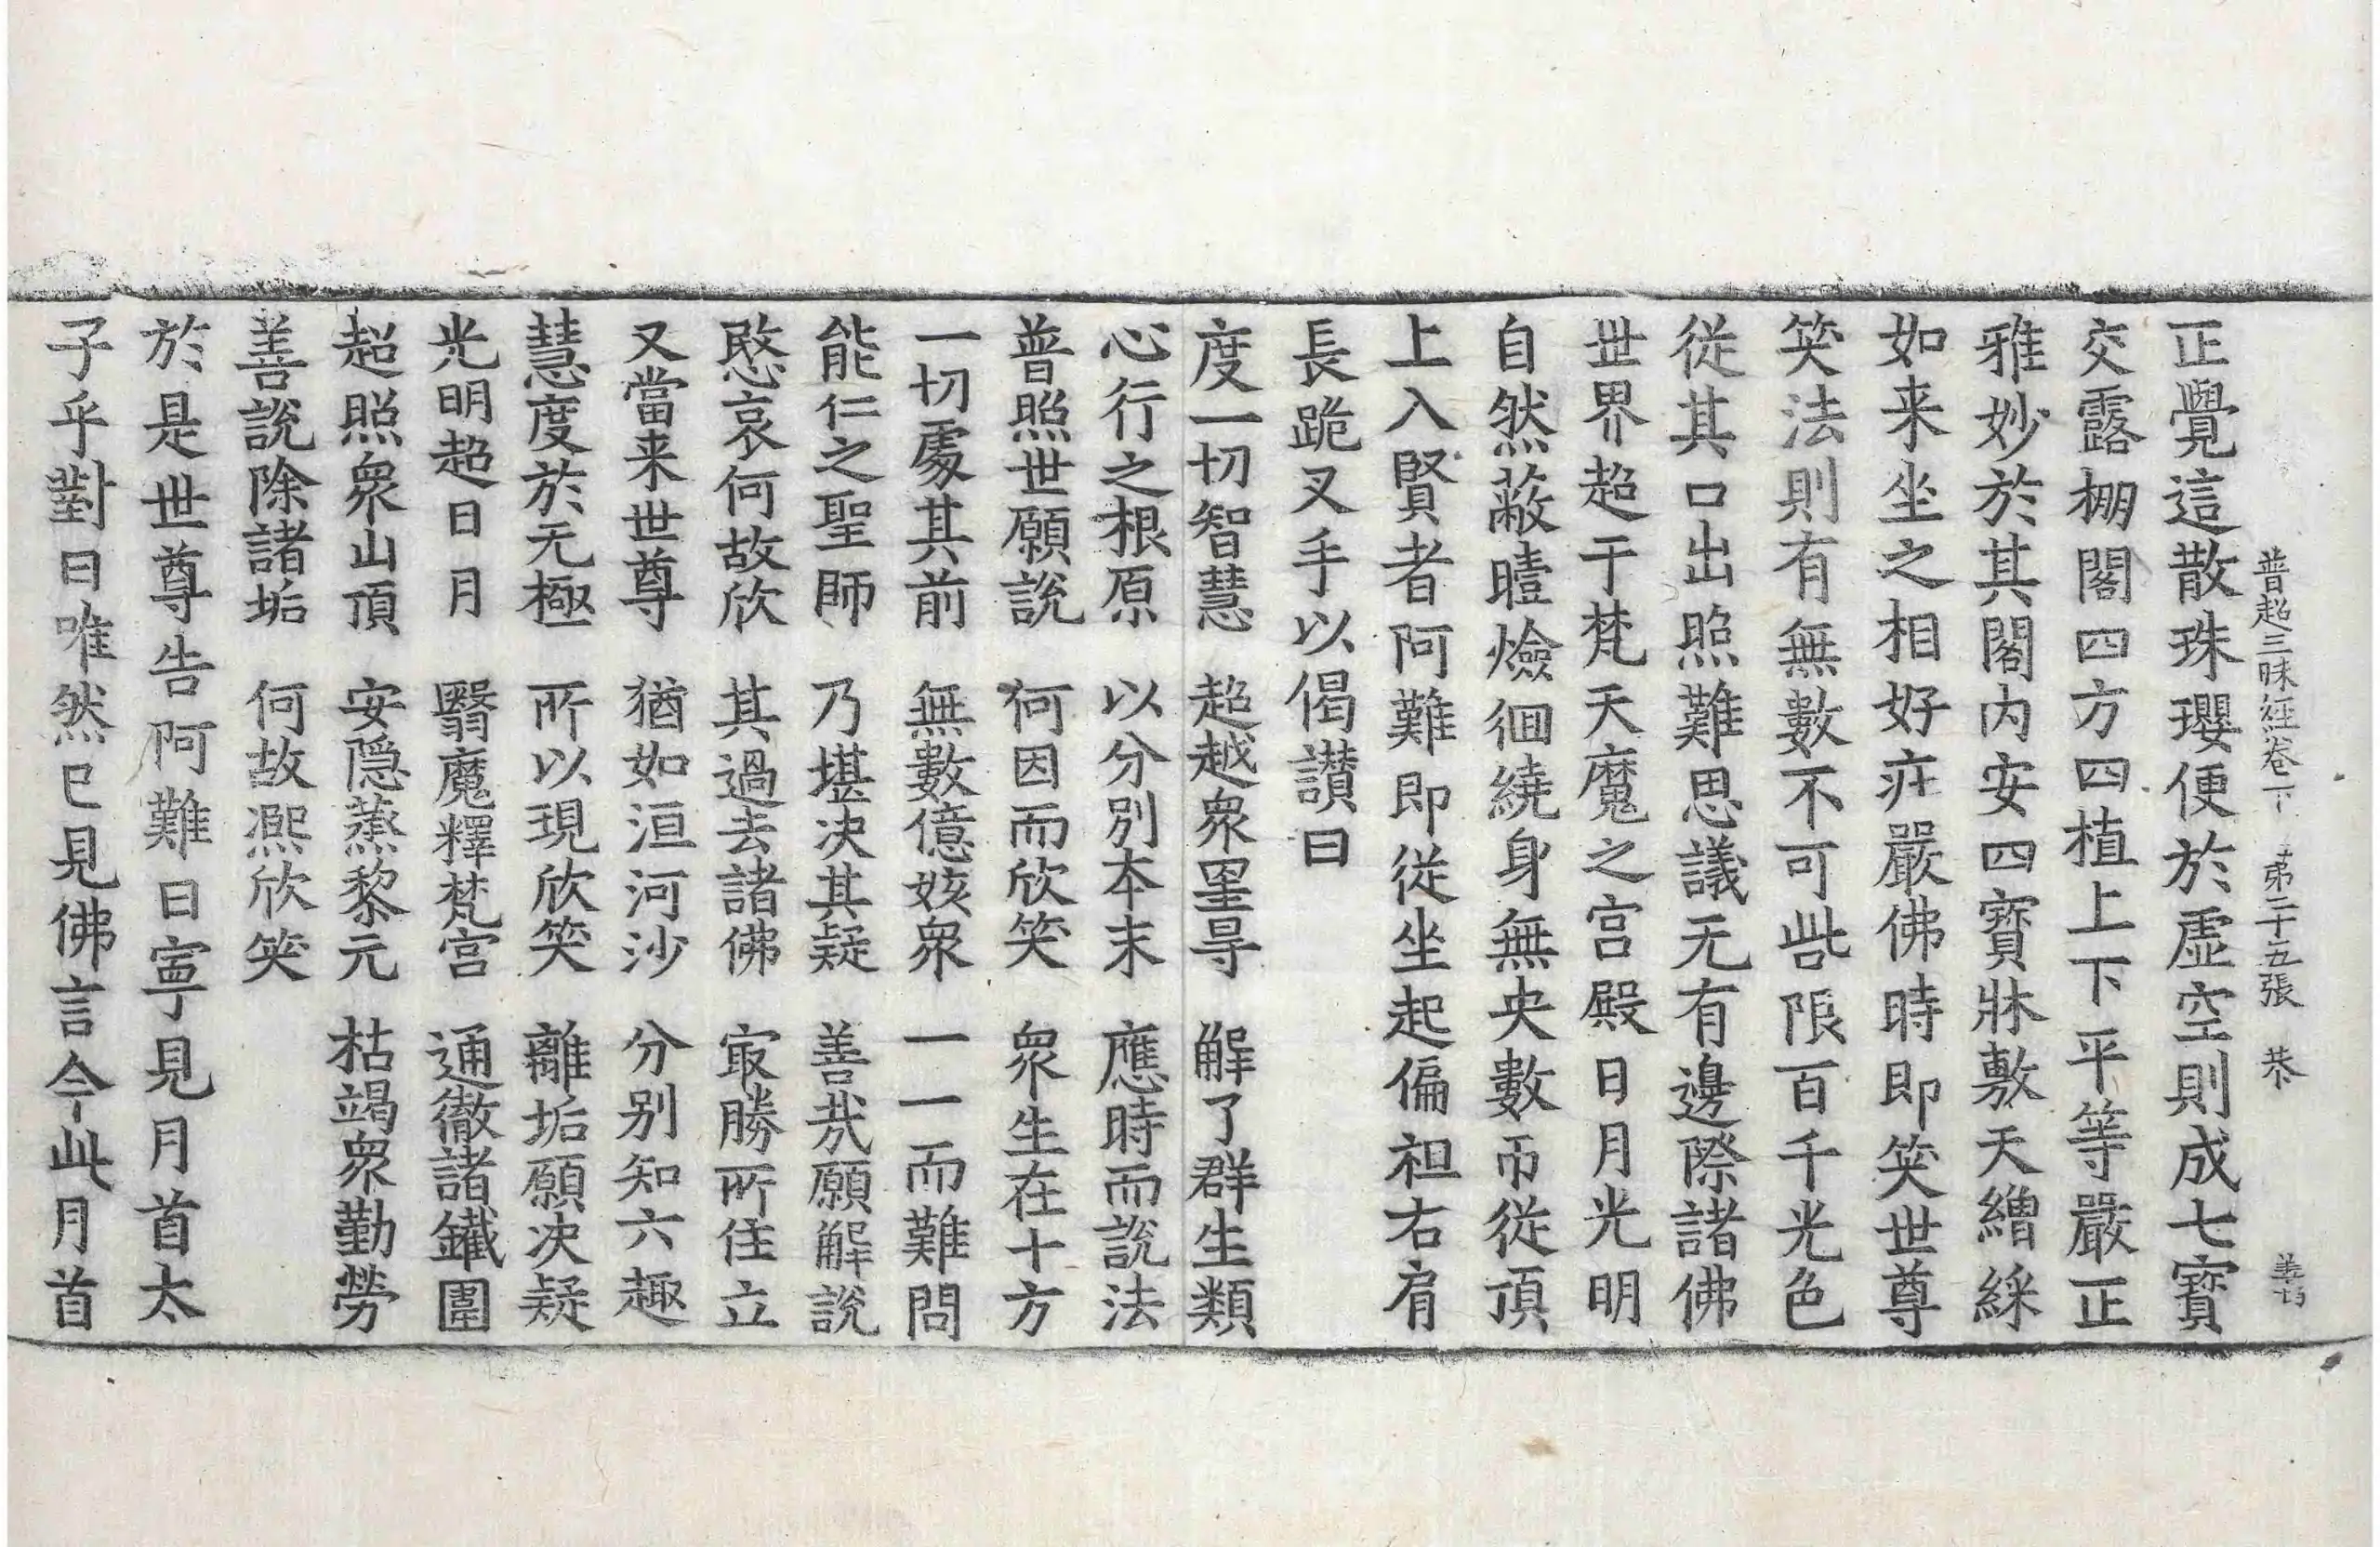 普超三昧經卷下　第二十五張　恭
正覺這散珠瓔便於虛空則成七寶
交露棚閣四方四植上下平等嚴正
雅妙於其閣内安四寶牀敷天繒綵
如来坐之相好庄嚴佛時即笑世尊
笑法則有無數不可呰限百千光色
從其口出照難思議无有邊際諸佛
世界超于梵天魔之宮殿日月光明
自然蔽曀燄徊繞身無央數帀從頂
上入賢者阿難即從坐起偏袒右肩
長跪叉手以偈讃曰
度一切智慧　超越衆罣㝵　解了群生類
心行之根原　以分別本末　應時而説法
普照世願説　何因而欣笑　衆生在十方
一切處其前　無數億姟衆　一一而難問
能仁之聖師　乃堪决其疑　善哉願解説
愍哀何故欣　其過去諸佛　㝡勝所住立
又當来世尊　猶如洹河沙　分别知六趣
慧度於无極　所以現欣笑　離垢願决疑
光明超日月　翳魔釋梵宮　通徹諸鐵圍
超照衆山頂　安隠蒸黎元　枯竭衆勤勞
善説除諸垢　何故凞欣笑
於是世尊告阿難曰寧見月首太
子乎對曰唯然已見佛言今此月首